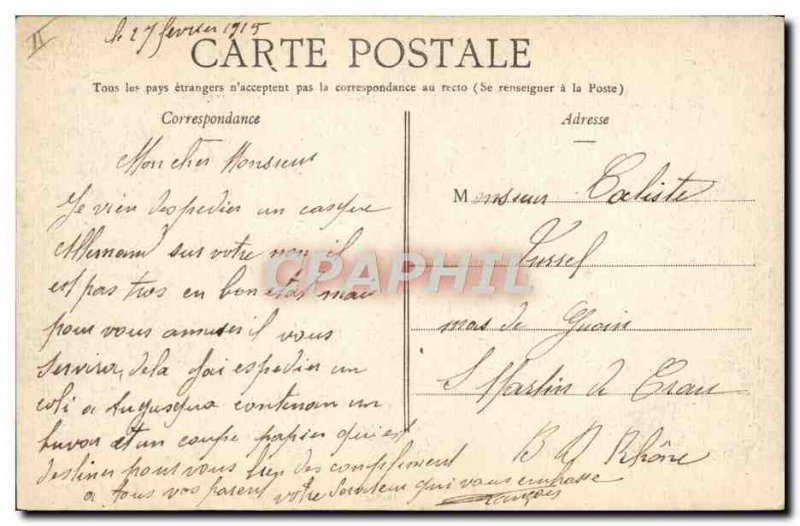 II
le 27 février 1915
CARTE POSTALE
Tous les pays étrangers n'acceptent pas la correspondance au recto (Se renseigner à la Poste)
Correspondance
Mon cher Monsieur
Je vien despedier un casque
Allemand sur votre non il
est pas tros en bon etat mai
pour vous amuser il vous
servira, dela j'ai espedier un
coli a contenan un
buvar et un coupe papier qui est
destiner pour vous bien des complément
a tous vos parent votre serviteur qui vous embrasse
François
Adresse
Monsieur Caliste
Vursel
mas de
St Martin de Crau
B D Rhône
CPAPHIL